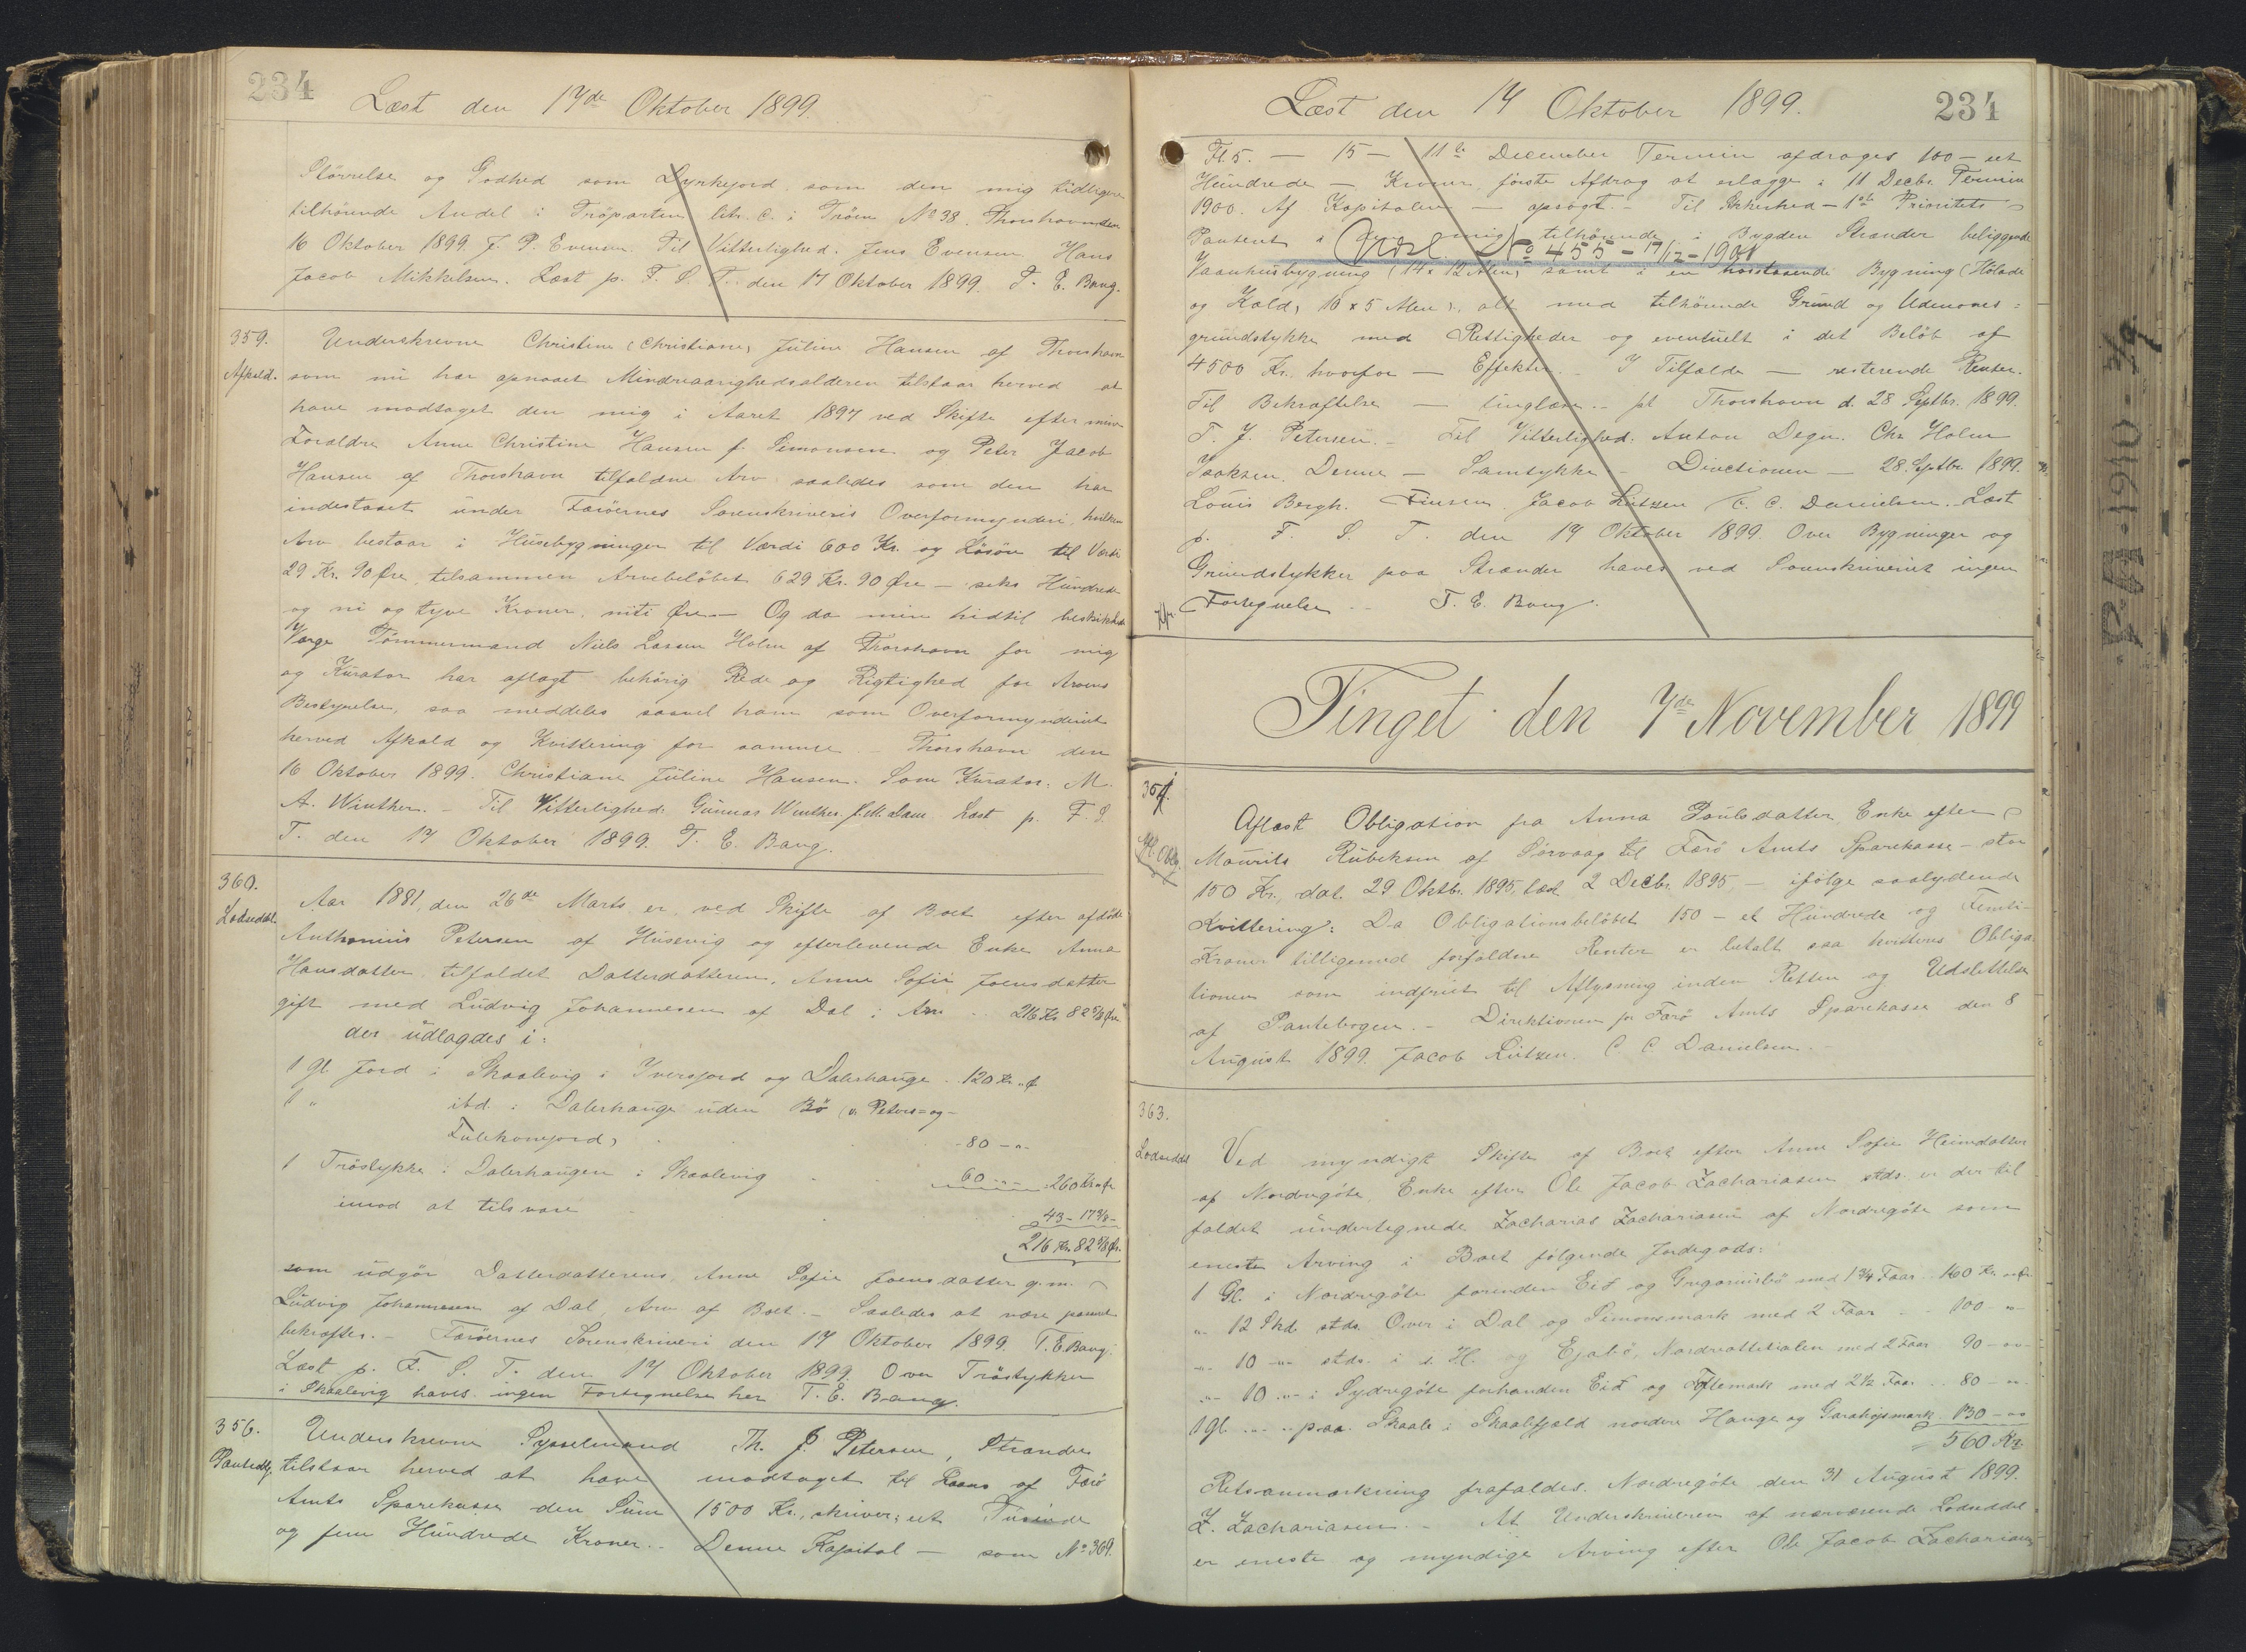 234
Læst den 17de Oktober 1899.
Störrelse og Godhed som Dyrkejord som den mig tidligere
tilhörende Andel i Tröparten litr. C. i Tröen No 38. Thorshavn den
16 Oktober 1899. J. P. Evensen. Til Vitterlighed: Jens Evensen Hans
Jacob Mikkelsen. Læst p. F. S. T. den 17 Oktober 1899. T. E. Bang.
359.
Afkald.
Underskrevne Christine (Christiane) Juline Hansen af Thorshavn
som nu har opnaaet Mindreaarighedsalderen tilstaar herved at
have modtaget den mig i Aaret 1897 ved Skifte efter mine
Forældre Anne Christine Hansen f. Simonsen og Peter Jacob
Hansen af Thorshavn tilfaldne Arv saaledes som den har
indestaaet under Færöernes Sorenskriveris Overformynderi, hvilken
Arv bestaar i Husebygninger til Værdi 600 Kr. og Lösöre til Værdi
29 Kr. 90 Øre, tilsammen Arvebelöbet 629 Kr. 90 Øre – seks Hundrede
og ni og tyve Kroner, niti Øre – Og da min hidtil beskikkede
Værge Tömmermand Niels Larsen Holm af Thorshavn for mig
og Kurator har aflagt behörig Rede og Rigtighed for Arvens
Bestyrelse, saa meddeles saavel ham som Overformynderiet
herved Afkald og Kvittering for samme. – Thorshavn den
16 Oktober 1899. Christiane Juline Hansen. Som Kurator: M.
A. Winther. – Til Vitterlighed: Gunnar Winther. J. M. Dam. Læst p. F. S.
T. den 17 Oktober 1899. T. E. Bang.
360.
Lodseddel.
Aar 1881, den 26de Marts er ved Skifte af Boet efter afdöde
Anthonius Petersen af Husevig og efterlevende Enke Anna
Hansdatter tilfaldet Datterdatteren, Anne Sofie Joensdatter
gift med Ludvig Johannesen af Dal i Arv . . 216 Kr. 82 5/8 Øre
der udlagdes i:
1 Gl. Jord i Skaalevig i Iversjord og Dalerhauge . . 120 Kr. " Ø.
1 " ibd. i Dalerhauge uden Bö (v. Peters= og
Fulekonejord) . . . 80 – " –
1 Tröstykke i Dalerhaugen i Skaalevig . . 60 – " – 260 Kr. " Ør.
imod at tilsvare . . . 43 – 17 3/8 –
216 Kr. 82 5/8 Ør.
som udgör Datterdatterens, Anne Sofie Joensdatter g. m.
Ludvig Johannesen af Dal, Arv af Boet. – Saaledes at være passeret
bekræftes. – Færöernes Sorenskriveri den 17 Oktober 1899. T. E. Bang.
Læst p. F. S. T. den 17 Oktober 1899. Over Tröstykker
i Skaalevig haves ingen Fortegnelse her T. E. Bang.
356.
Panteobl.
Underskrevne Sysselmand Th. J. Petersen, Strander
tilstaar herved at have modtaget til Laans af Færö
Amts Sparekasse den Sum 1500 Kr., skriver: et Tusinde
og fem Hundrede Kroner. – Denne Kapital – som No 369.
Læst den 17 Oktober 1899.
234
Fl. 5. – 15 – 11te December Termin afdrages 100 – et
Hundrede – Kroner, förste Afdrag at erlægge i 11 Decbr. Termin
1900. Af Kapitalen – opsagt. – Til Sikkerhed – 1ste Prioritets
Panteret i den mig tilhörende i Bygden Strander beliggende
Udsl. No 455 – 17/12 – 1901
Vaanhusbygning (14 x 12 Alen) samt i en hosstaaende Bygning (Hölade
og Kald, 16 x 5 Alen), alt med tilhörende Grund og Udenoms=
grundstykke med Rettigheder og eventuelt i det Belöb af
4500 Kr. hvorfor – Effekter. – I Tilfælde – resterende Renter.
Til Bekræftelse – tinglæses. – pt Thorshavn d. 28 Septbr. 1899.
T. J. Petersen. – Til Vitterlighed: Anton Degn. Chr. Holm
Isaksen. Denne – Samtykke – Directionen – 28. Septbr. 1899.
Louis Bergh. Finsen. Jacob Lützen C. C. Danielsen. Læst
p. F. S. T. den 17 Oktober 1899. Over Bygninger og
Grundstykker paa Strander haves ved Sorenskriveriet ingen
Fortegnelse. – T. E. Bang.
Tinget den 7de November 1899
Aflæst Obligation fra Anna Poulsdatter, Enke efter
Mourits Rubeksen af Sörvaag til Færö Amts Sparekasse – stor
150 Kr., dat. 29 Oktbr. 1895, læst 2 Decbr. 1895, – ifölge saalydende
Kvittering: Da Obligationsbelöbet 150 – et Hundrede og Femti –
Kroner tilligemed forfaldne Renter er betalt saa kvitteres Obliga=
tionen som indfriet til Aflysning inden Retten og Udslettelse
af Pantebogen. – Direktionen for Færö Amts Sparekasse den 8
August 1899. Jacob Lützen. C. C. Danielsen. –
363.
Lodseddel
Ved myndigt Skifte af Boet efter Anne Sofie Heinedatter
af Nordregöte, Enke efter Ole Jacob Zachariasen stds. er der til
faldet undertegnede Zacharias Zachariasen af Nordregöte som
eneste Arving i Boet fölgende Jordegods:
1 Gl. i Nordregöte forinden Eið og Gregoriusbö med 1 3/4 Faar . . 160 Kr. " Ør.
" 12 Skd. stds. Over i Dal og Simonsmark med 2 Faar . . 100 – " –
" 10 – " – stds. i s. H. og Ejabö, Nordreattetialen med 2 Faar 90 – " –
" 10 – " – i Sydregöte forhanden Eið og Toftemark med 2 1/2 Faar . . 80 – " –
1 Gl. . . . paa Skaale i Skaalefjeld nordre Hauge og Garahojsmark 130 – " –
560 Kr.
Retsanmærkning frafaldes. Nordregöte den 31 August 1899.
Z. Zachariasen. – At Underskriveren af nærværende Lodseddel
er eneste og myndige Arving efter Ole Jacob Zachariasen